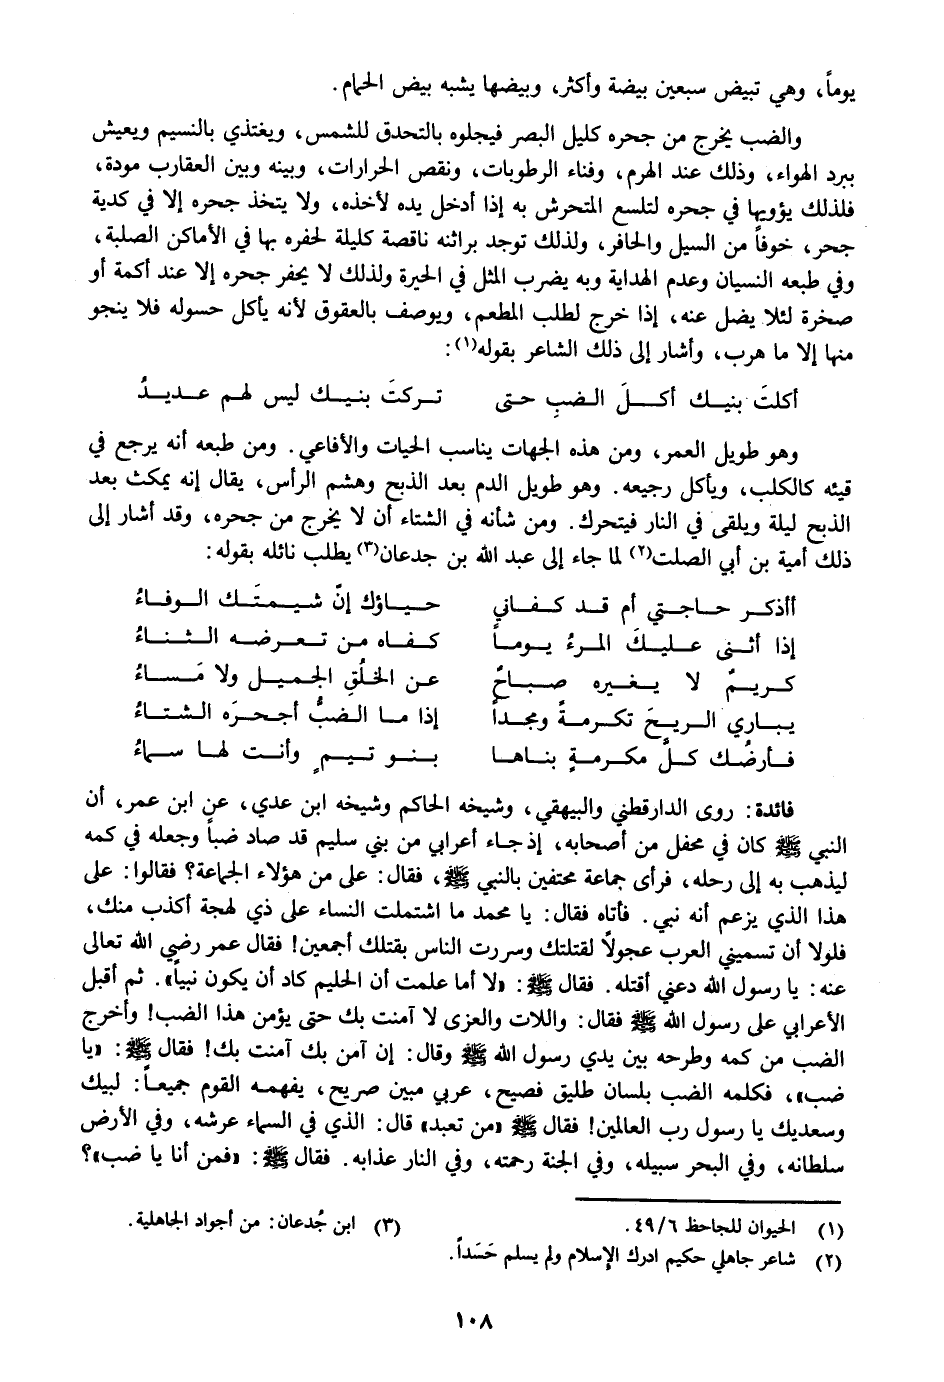 يوماً، وهي تبيض سبعين بيضة وأكثر، وبيضها يشبه بيض الحمام.
والضب يخرج من جحره كليل البصر فيجلوه بالتحدق للشمس، ويغتذي بالنسيم ويعيش
ببرد الهواء، وذلك عند الهرم، وفناء الرطوبات، ونقص الحرارات، وبينه وبين العقارب مودة،
فلذلك يؤويها في جحره لتلسع المتحرش به إذا أدخل يده لأخذه، ولا يتخذ جحره إلا في كدية
جحر، خوفاً من السيل والحافر، ولذلك توجد براثنه ناقصة كليلة لحفره بها في الأماكن الصلبة،
وفي طبعه النسيان وعدم الهداية وبه يضرب المثل في الحيرة ولذلك لا يحفر جحره إلا عند أكمة أو
صخرة لئلا يضل عنه، إذا خرج لطلب المطعم، ويوصف بالعقوق لأنه يأكل حسوله فلا ينجو
منها إلا ما هرب، وأشار إلى ذلك الشاعر بقوله(١):
أكلتَ بنيـك أكـلَ الضبِ حتى تركتَ بنيـك ليس لهم عديدُ
وهو طويل العمر، ومن هذه الجهات يناسب الحيات والأفاعي. ومن طبعه أنه يرجع في
قيئه كالكلب، ويأكل رجيعه. وهو طويل الدم بعد الذبح وهشم الرأس، يقال إنه يمكث بعد
الذبح ليلة ويلقى في النار فيتحرك. ومن شأنه في الشتاء أن لا يخرج من جحره، وقد أشار إلى
ذلك أمية بن أبي الصلت(٢) لما جاء إلى عبد الله بن جدعان(٣) يطلب نائله بقوله:
أأذكر حاجتي أم قد كفاني حياؤك إنّ شيمتَك الوفاءُ
إذا أثنى عليكَ المرءُ يوماً كفاه من تعرضه الثناءُ
كريمٌ لا يغيره صباحٌ عن الخلُقِ الجميل ولا مَساءُ
يباري الريحَ تكرمةً ومجداً إذا ما الضبُّ أجحرَه الشتاءُ
فأرضُك كلُّ مكرمةٍ بناها بنو تيمٍ وأنت لها سماءُ
فائدة: روى الدارقطني والبيهقي، وشيخه الحاكم وشيخه ابن عدي، عن ابن عمر، أن
النبي ﷺ كان في محفل من أصحابه، إذ جاء أعرابي من بني سليم قد صاد ضباً وجعله في كمه
ليذهب به إلى رحله، فرأى جماعة محتفين بالنبي ﷺ، فقال: على من هؤلاء الجماعة؟ فقالوا: على
هذا الذي يزعم أنه نبي. فأتاه فقال: يا محمد ما اشتملت النساء على ذي لهجة أكذب منك،
فلولا أن تسميني العرب عجولاً لقتلتك وسررت الناس بقتلك أجمعين! فقال عمر رضي الله تعالى
عنه: يا رسول الله دعني أقتله. فقال ﷺ: «لا أما علمت أن الحليم كاد أن يكون نبياً». ثم أقبل
الأعرابي على رسول الله ﷺ فقال: واللات والعزى لا آمنت بك حتى يؤمن هذا الضب! وأخرج
الضب من كمه وطرحه بين يدي رسول الله ﷺ وقال: إن آمن بك آمنت بك! فقال ﷺ: «يا
ضب»، فكلمه الضب بلسان طليق فصيح، عربي مبين صريح، يفهمه القوم جميعاً: لبيك
وسعديك يا رسول رب العالمين! فقال ﷺ «من تعبد» قال: الذي في السماء عرشه، وفي الأرض
سلطانه، وفي البحر سبيله، وفي الجنة رحمته، وفي النار عذابه. فقال ﷺ: «فمن أنا يا ضب»؟
(١) الحيوان للجاحظ ٤٩/٦. (٣) ابن جُدعان: من أجواد الجاهلية.
(٢) شاعر جاهلي حكيم ادرك الإسلام ولم يسلم حَسَداً.
١٠٨